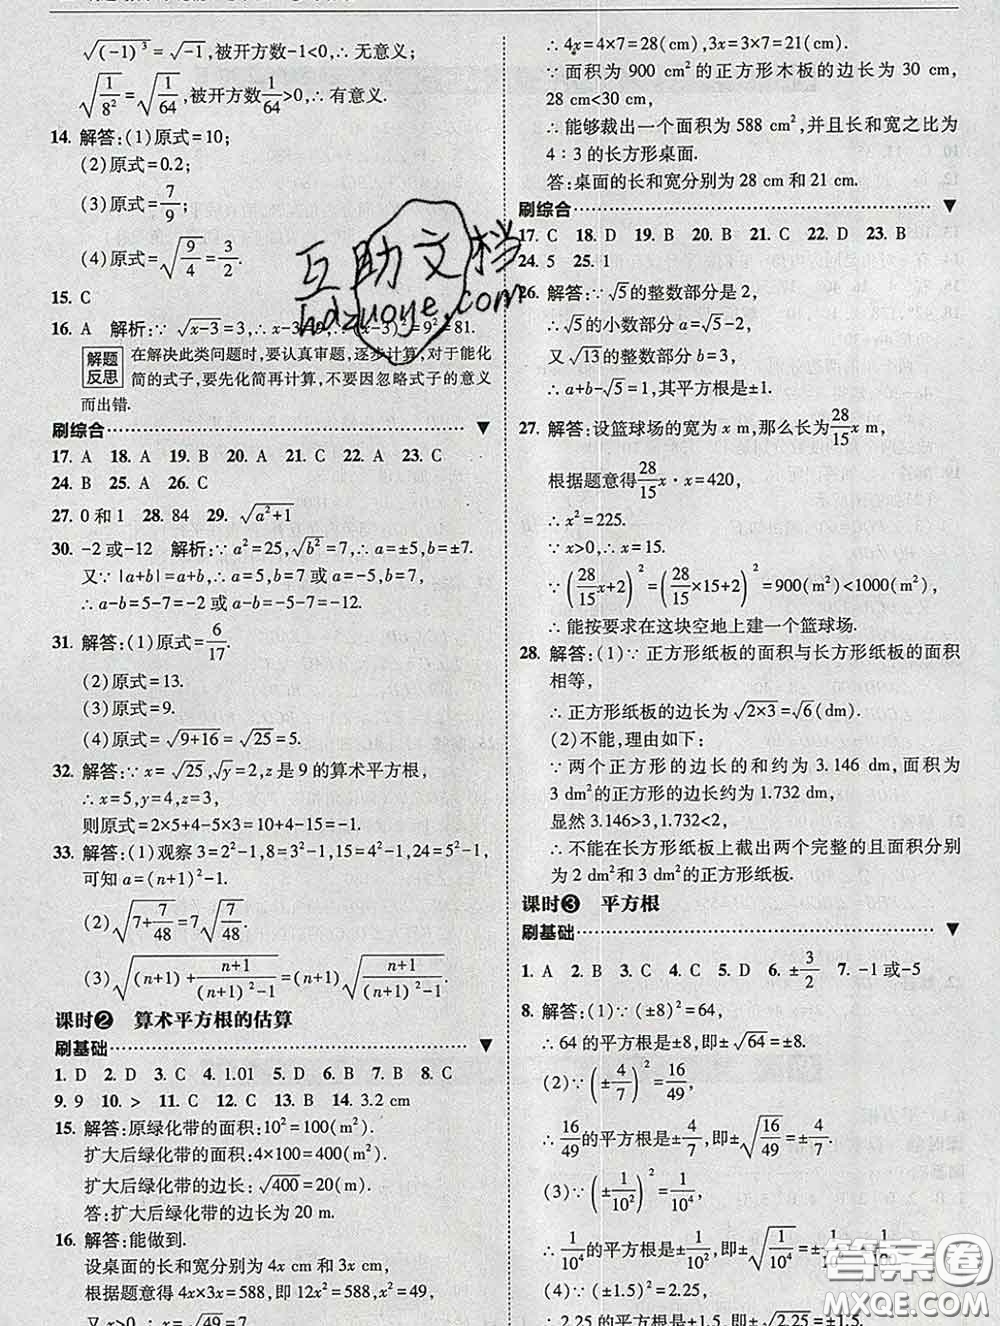 √(-1)³=√-1,被开方数-1<0,∴无意义;
√(1/8²)=√(1/64),被开方数1/64>0,∴有意义.
14. 解答:(1)原式=10;
(2)原式=0.2;
(3)原式=7/9;
(4)原式=√(9/4)=3/2.
15. C
16. A 解析:∵√(x-3)=3,∴x-3=9,∴(x-3)²=9²=81.
解题反思 在解决此类问题时,要认真审题,逐步计算,对于能化
简的式子,要先化简再计算,不要因忽略式子的意义
而出错.
刷综合
17. A 18. A 19. B 20. A 21. C 22. A 23. C
24. B 25. A 26. C
27. 0和1 28. 84 29. √(a²+1)
30. -2或-12 解析:∵a²=25,√b²=7,∴a=±5,b=±7.
又∵|a+b|=a+b,∴a=5,b=7或a=-5,b=7,
∴a-b=5-7=-2或a-b=-5-7=-12.
31. 解答:(1)原式=6/17.
(2)原式=13.
(3)原式=9.
(4)原式=√(9+16)=√25=5.
32. 解答:∵x=√25,√y=2,z是9的算术平方根,
∴x=5,y=4,z=3,
则原式=2×5+4-5×3=10+4-15=-1.
33. 解答:(1)观察3=2²-1,8=3²-1,15=4²-1,24=5²-1,
可知a=(n+1)²-1.
(2)√(7+7/48)=7√(7/48).
(3)√((n+1)+(n+1)/((n+1)²-1))=(n+1)√((n+1)/((n+1)²-1)).
课时❷ 算术平方根的估算
刷基础
1. D 2. D 3. C 4. 1.01 5. D 6. B 7. B 8. C
9. 9 10. > 11. C 12. C 13. B 14. 3.2 cm
15. 解答:原绿化带的面积:10²=100(m²).
扩大后绿化带的面积:4×100=400(m²).
扩大后绿化带的边长:√400=20(m).
答:扩大后绿化带的边长为20 m.
16. 解答:能做到.
设桌面的长和宽分别为4x cm和3x cm,
根据题意得4x×3x=588,即12x²=588,x²=49,
又x>0,∴x=√49=7,
∴4x=4×7=28(cm),3x=3×7=21(cm).
∵面积为900 cm²的正方形木板的边长为30 cm,
28 cm<30 cm,
∴能够裁出一个面积为588 cm²,并且长和宽之比为
4∶3的长方形桌面.
答:桌面的长和宽分别为28 cm和21 cm.
刷综合
17. C 18. D 19. B 20. B 21. C 22. D 23. B
24. 5 25. 1
26. 解答:∵√5的整数部分是2,
∴√5的小数部分a=√5-2,
又∵√13的整数部分b=3,
∴a+b-√5=1,其平方根是±1.
27. 解答:设篮球场的宽为x m,那么长为28/15 x m,
根据题意得28/15 x·x=420,
∴x²=225.
∵x>0,∴x=15.
又∵(28/15 x+2)²=(28/15×15+2)²=900(m²)<1000(m²),
∴能按要求在这块空地上建一个篮球场.
28. 解答:(1)∵正方形纸板的面积与长方形纸板的面积
相等,
∴正方形纸板的边长为√(2×3)=√6(dm).
(2)不能,理由如下:
∵两个正方形的边长的和约为3.146 dm,面积为
3 dm²的正方形的边长约为1.732 dm,
显然3.146>3,1.732<2,
∴不能在长方形纸板上截出两个完整的且面积分别
为2 dm²和3 dm²的正方形纸板.
课时❸ 平方根
刷基础
1. A 2. B 3. C 4. C 5. D 6. ±3/2 7. -1或-5
8. 解答:(1)∵(±8)²=64,
∴64的平方根是±8,即±√64=±8.
(2)∵(±4/7)²=16/49,
∴16/49的平方根是±4/7,即±√(16/49)=±4/7.
(3)∵(±1/10²)²=1/10⁴,
∴1/10⁴的平方根是±1/10²,即±√(1/10⁴)=±1/10².
(4)∵(±1.5)²=2.25,
∴2.25的平方根是±1.5,即±√2.25=±1.5.
互助文档
hdzuoye.com
答案圈
MXQE.COM